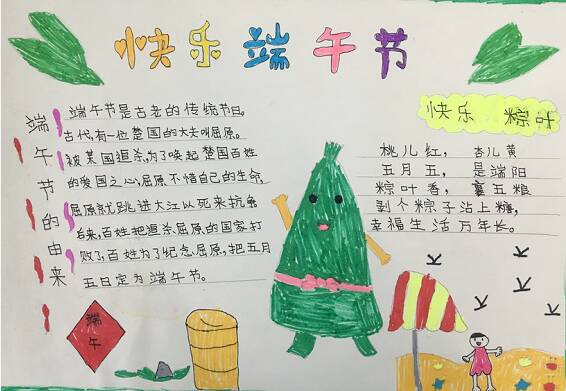 快乐端午节
端午节的由来
端午节是古老的传统节日。
古代,有一位楚国的大夫叫屈原。
被某国追杀,为了唤起楚国百姓
的爱国之心,屈原不惜自己的生命,
屈原就跳进大江以死来抗
后来,百姓把追杀屈原的国家打
败了,百姓为了纪念屈原,把五月
五日定为端午节。
快乐 粽叶
桃儿红, 杏儿黄
五月五, 是端阳
粽叶香, 裹五粮
剥个粽子沾上糖,
幸福生活万年长。
端午